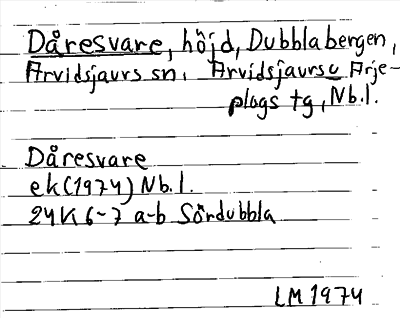 Dåresvare, höjd, Dubblabergen,
Arvidsjaurs sn, Arvidsjaurs o Arje-
plogs tg, Nb.l.
Dåresvare
ek (1974) Nb.l.
24K 6-7 a-b Sördubbla
LM 1974